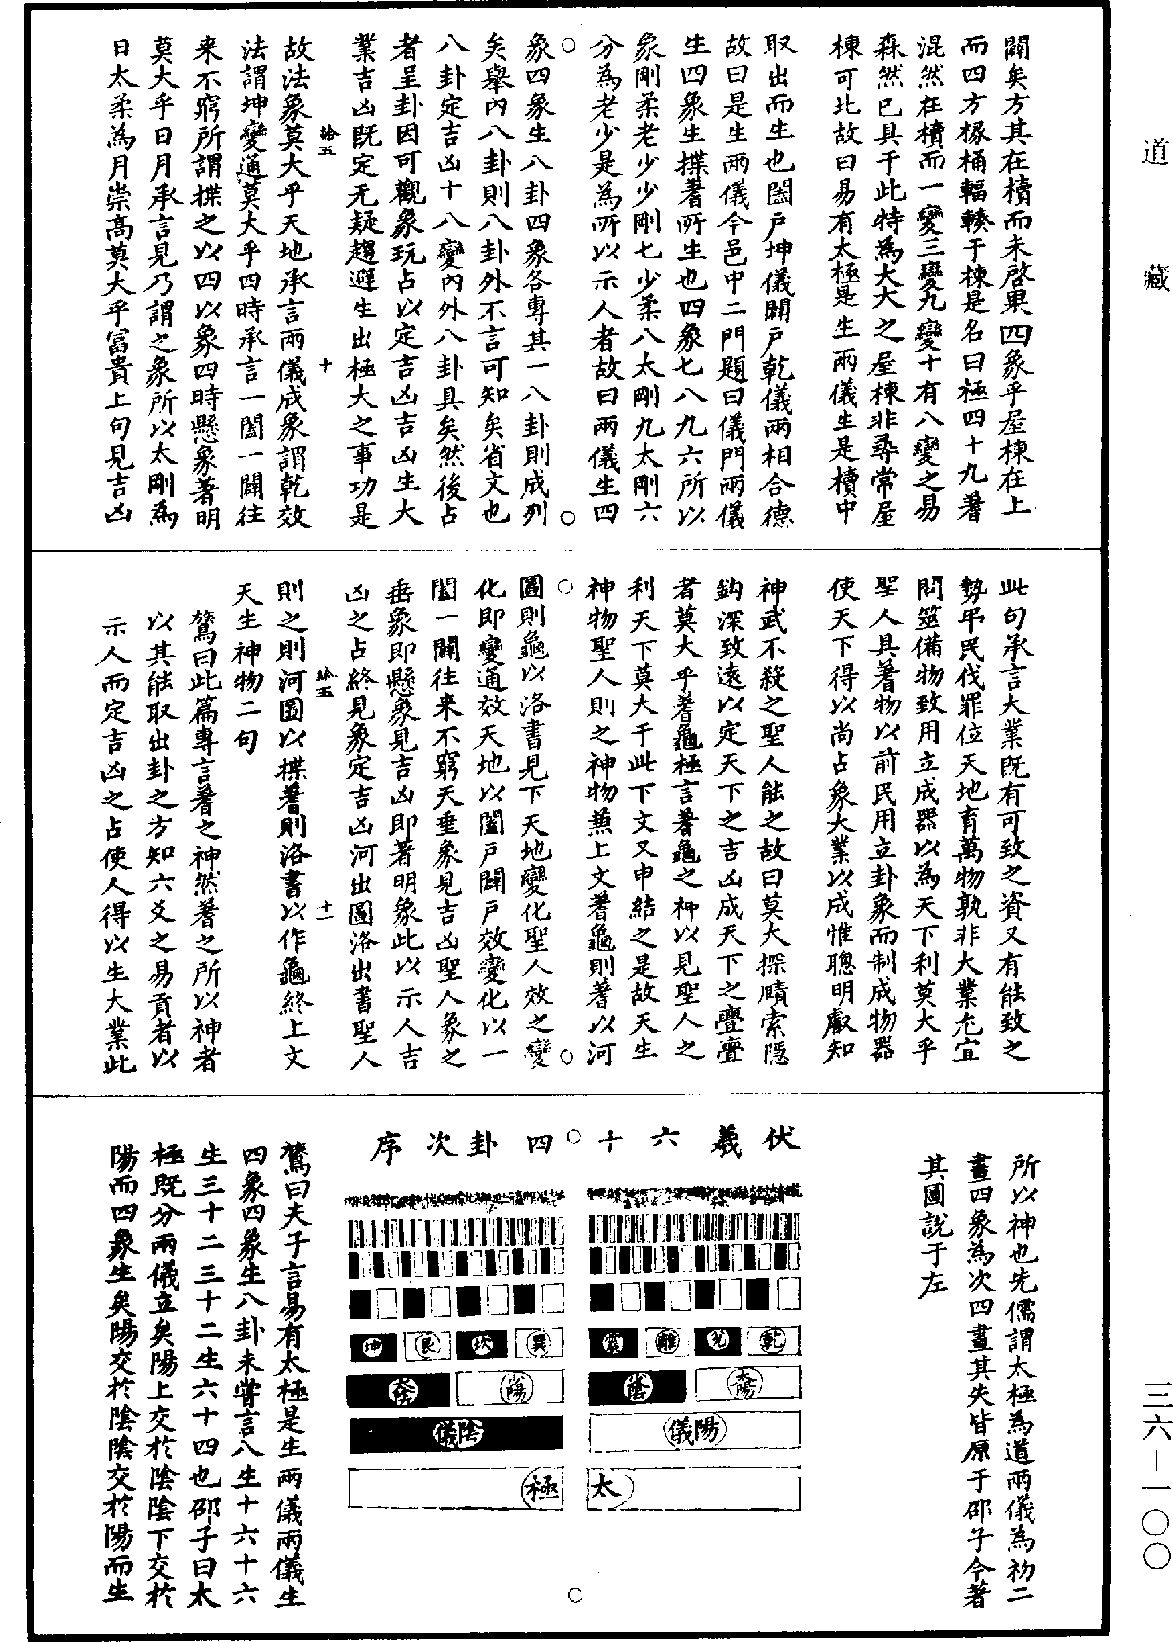 道藏
闢矣方其在櫝而未啓果四象乎屋棟在上
而四方椽桷輻輳于棟是名曰極四十九蓍
混然在櫝而一變三變九變十有八變之易
森然已具于此特為大大之屋棟非尋常屋
棟可比故曰易有太極是生兩儀生是櫝中
取出而生也闔戶坤儀闢戶乾儀兩相合德
故曰是生兩儀今邑中二門題曰儀門兩儀
生四象生揲蓍所生也四象七八九六所以
象剛柔老少少剛七少柔八太剛九太剛六
分為老少是為所以示人者故曰兩儀生四
象四象生八卦四象各專其一八卦則成列
矣舉內八卦則八卦外不言可知矣省文也
八卦定吉凶十八變內外八卦具矣然後占
者呈卦因可觀象玩占以定吉凶吉凶生大
業吉凶既定无疑趨避生出極大之事功是
拾五
十
故法象莫大乎天地承言兩儀成象謂乾效
法謂坤變通莫大乎四時承言一闔一闢往
来不窮所謂揲之以四以象四時懸象著明
莫大乎日月承言見乃謂之象所以太剛為
日太柔為月崇高莫大乎富貴上句見吉凶
此句承言大業既有可致之資又有能致之
勢弔民伐罪位天地育萬物孰非大業尤宜
問筮備物致用立成器以為天下利莫大乎
聖人具蓍物以前民用立卦象而制成物器
使天下得以尚占象大業以成惟聰明叡知
神武不殺之聖人能之故曰莫大探賾索隱
鈎深致遠以定天下之吉凶成天下之亹亹
者莫大乎蓍龜極言蓍龜之神以見聖人之
利天下莫大于此下文又申結之是故天生
神物聖人則之神物蕪上文蓍龜則蓍以河
圖則龜以洛書見下天地變化聖人效之變
化即變通效天地以闔戶闢戶效變化以一
闔一闢往来不窮天垂象見吉凶聖人象之
垂象即懸象見吉凶即著明象此以示人吉
凶之占終見象定吉凶河出圖洛出書聖人
拾五
十一
則之則河圖以揲蓍則洛書以作龜終上文
天生神物二句
鶩曰此篇專言蓍之神然蓍之所以神者
以其能取出卦之方知六爻之易貢者以
示人而定吉凶之占使人得以生大業此
所以神也先儒謂太極為道兩儀為初二
畫四象為次四畫其失皆原于邵子今著
其圖說于左
伏羲六十四卦次序
乾 兌 離 震 巽 坎 艮 坤
太陽 陰 陽 太陰
陽儀 陰儀
太極
鶩曰夫子言易有太極是生兩儀兩儀生
四象四象生八卦未嘗言八生十六十六
生三十二三十二生六十四也邵子曰太
極既分兩儀立矣陽上交於陰陰下交於
陽而四象生矣陽交於陰陰交於陽而生
三六-一〇〇